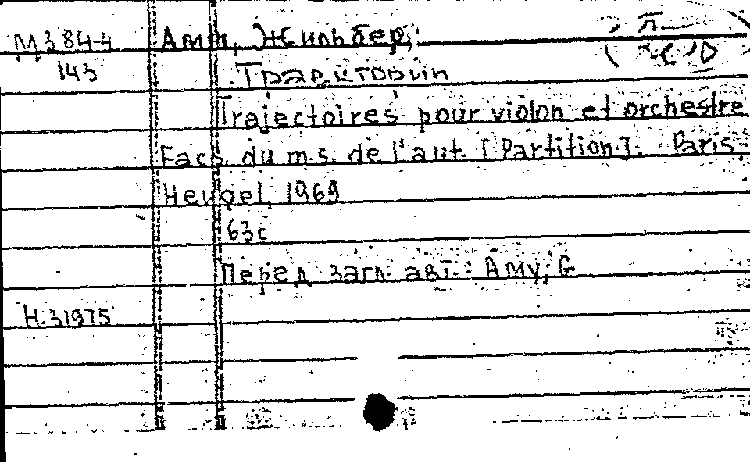 М384-4 Ами, Жильбер,
143 Траектории
Trajectoires pour violon et orchestre
Facs. du ms. de l'aut. [Partition]. Paris:
Heugel, 1969
63с
Перед загл. авт.: Amy, G
Н.31975